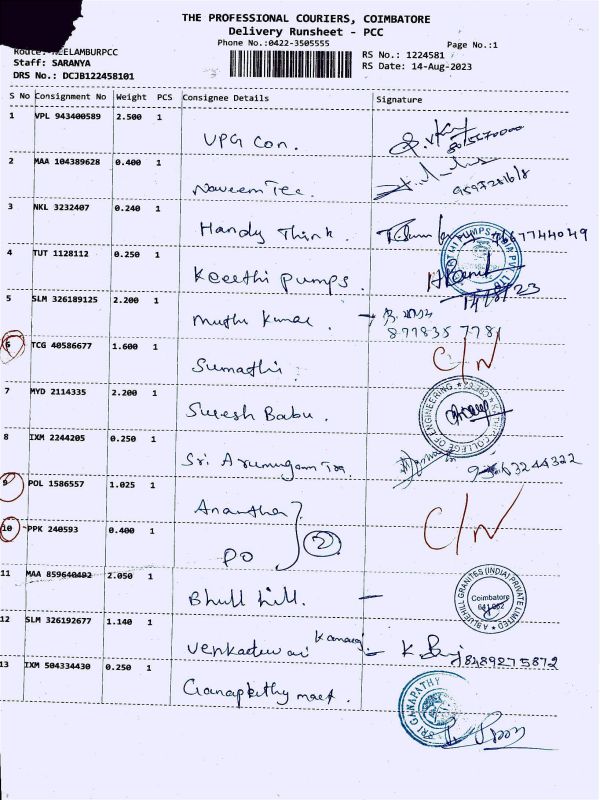 THE PROFESSIONAL COURIERS, COIMBATORE
Delivery Runsheet - PCC
Phone No.:0422-3505555 Page No.:1
Route: NEELAMBURPCC RS No.: 1224581
Staff: SARANYA RS Date: 14-Aug-2023
DRS No.: DCJB122458101
S No Consignment No Weight PCS Consignee Details Signature
1 VPL 943400589 2.500 1
VPG Con.
2 MAA 104389628 0.400 1
Naveem Tec.
3 NKL 3232407 0.240 1
Handy Think.
4 TUT 1128112 0.250 1
Keeethi pumps.
14/8/23
5 SLM 326189125 2.200 1
muthu kumar.
877835 7781
6 TCG 40586677 1.600 1 C/N
Sumathi.
7 MYD 2114335 2.200 1
Suresh Babu.
COLLEGE OF ENGINEERING
8 IXM 2244205 0.250 1
Sri Arumugam
63244322
9 POL 1586557 1.025 1
Anantha
C/N
10 PPK 240593 0.400 1 2
PO
11 MAA 859640492 2.050 1
Bhull hill. -
A BLUEHILL GRANITES (INDIA) PRIVATE LIMITED
Coimbatore
12 SLM 326192677 1.140 1
K.
8489275872
13 IXM 504334430 0.250 1
SRI GANAPATHY